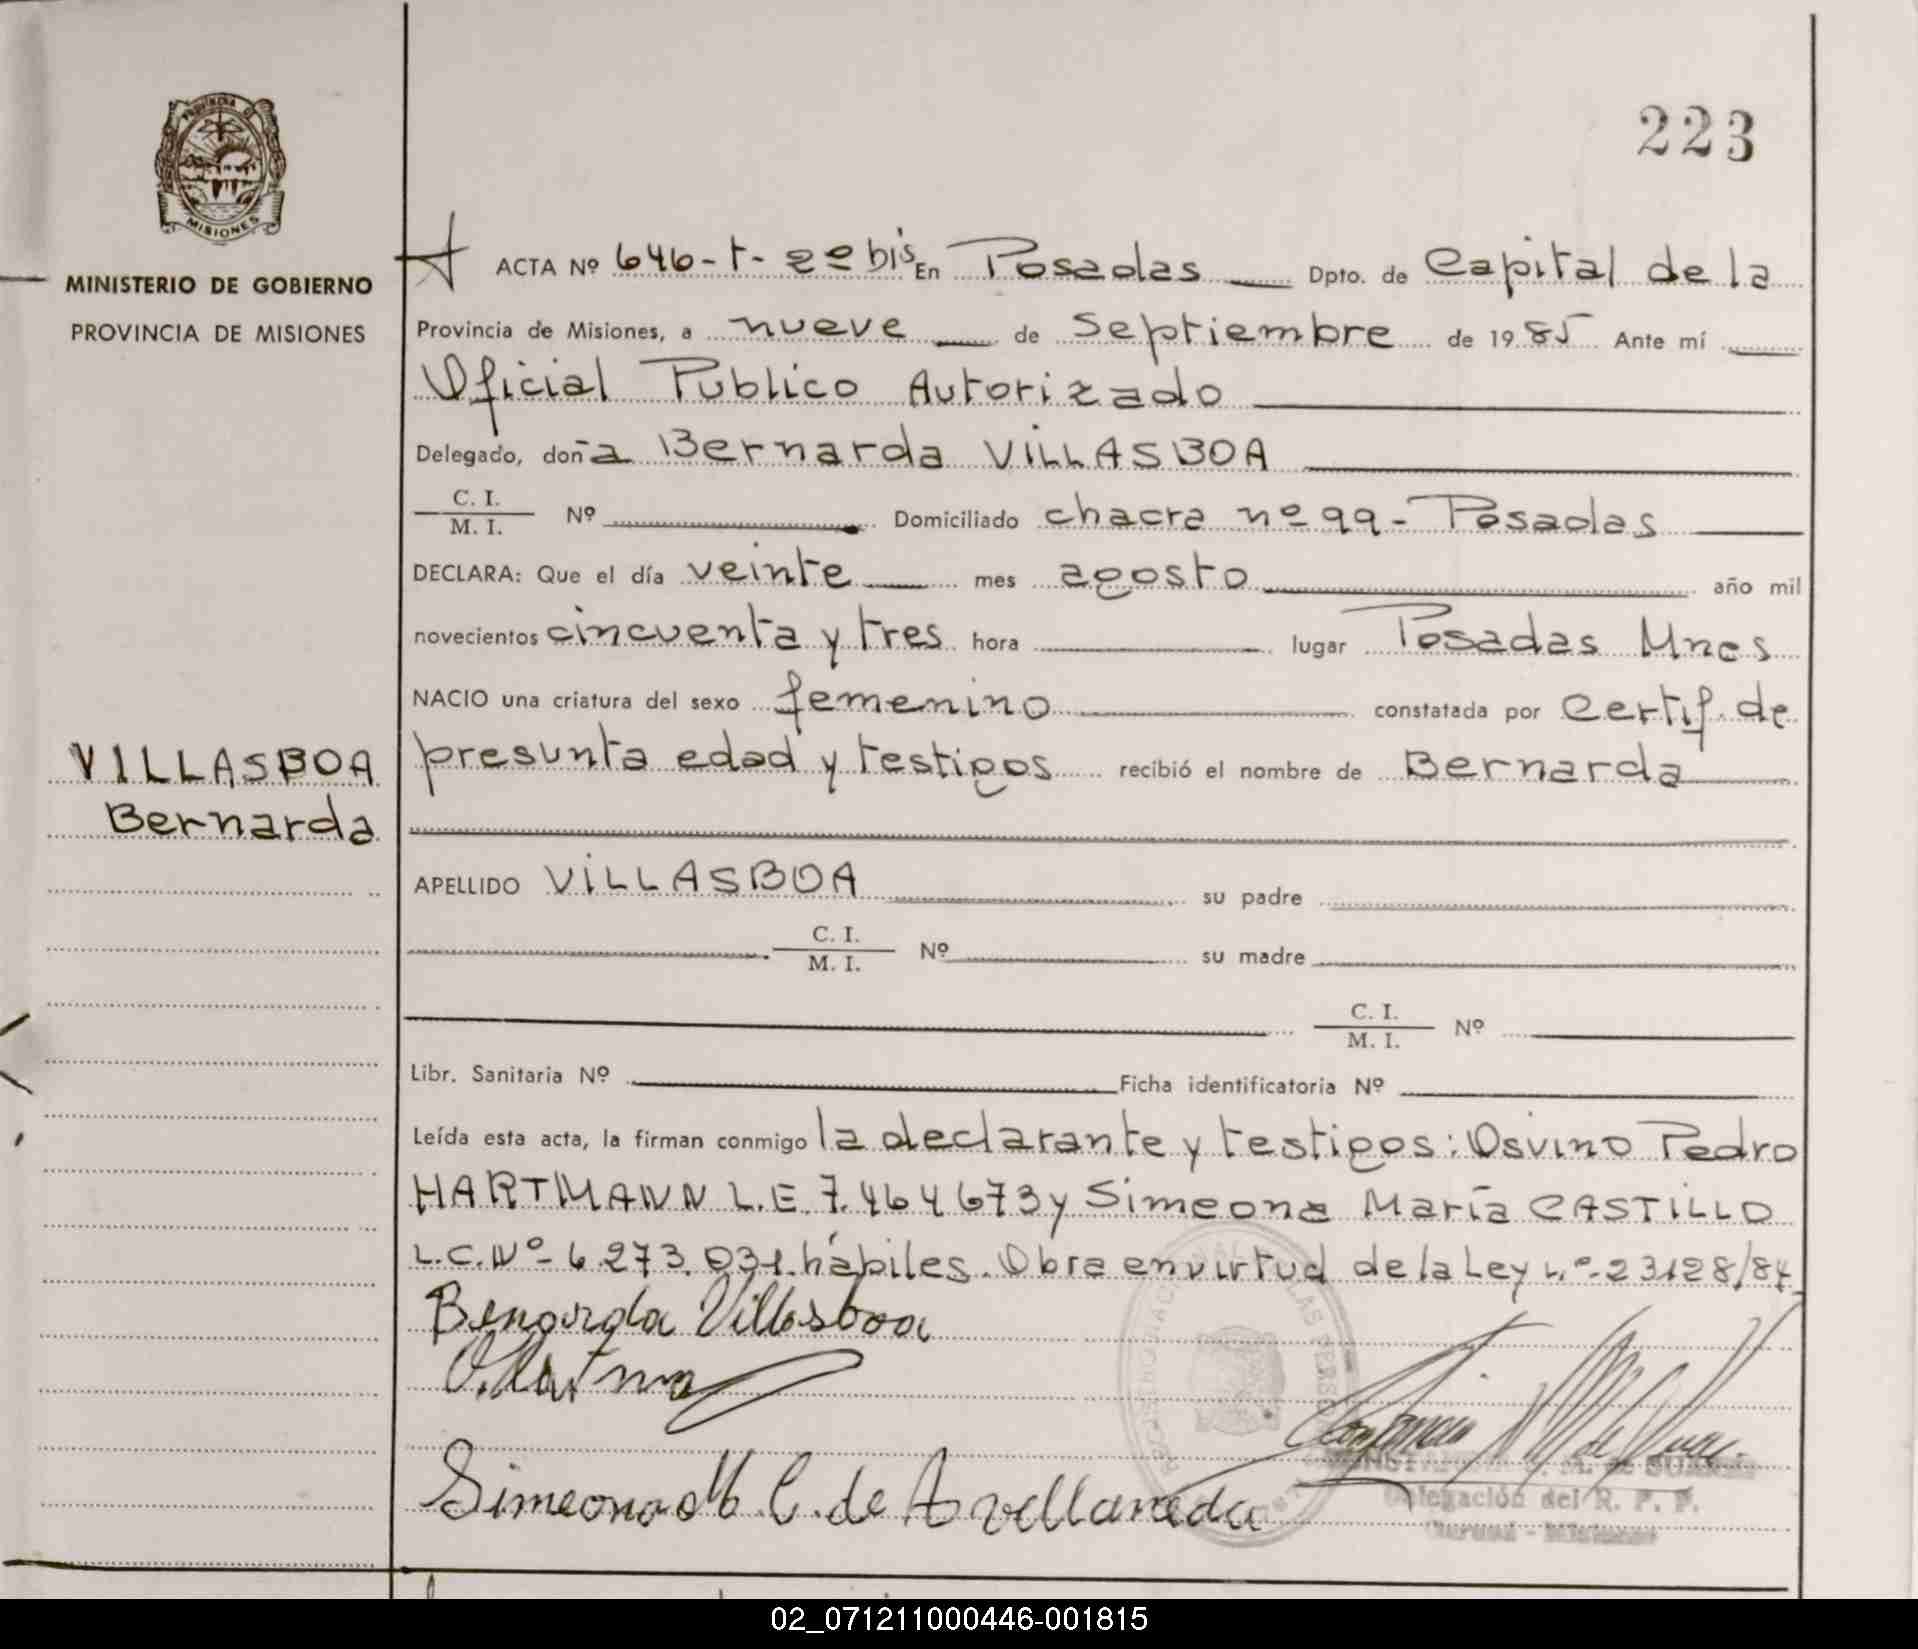 223
PROVINCIA DE
MISIONES
MINISTERIO DE GOBIERNO
PROVINCIA DE MISIONES
VILLASBOA
Bernarda
ACTA Nº 646-t-2º bis En Posadas Dpto. de Capital de la
Provincia de Misiones, a nueve de Septiembre de 1985 Ante mí
Oficial Publico Autorizado
Delegado, doña Bernarda VILLASBOA
C. I.
M. I. Nº Domiciliado chacra nº 99- Posadas
DECLARA: Que el día veinte mes agosto año mil
novecientos cincuenta y tres hora lugar Posadas Mnes
NACIO una criatura del sexo femenino constatada por Certif. de
presunta edad y testigos recibió el nombre de Bernarda
APELLIDO VILLASBOA su padre
C. I.
M. I. Nº su madre
C. I.
M. I. Nº
Libr. Sanitaria Nº Ficha identificatoria Nº
Leída esta acta, la firman conmigo la declarante y testigos: Osvino Pedro
HARTMANN L.E. 7.464673 y Simeona María CASTILLO
L.C.Nº 6.273.031. hábiles. Obra en virtud de la Ley nº 23128/84
Benarda Villasboa
Simeona M. C. de Avellaneda
Delegación del R. P. P.
02_071211000446-001815